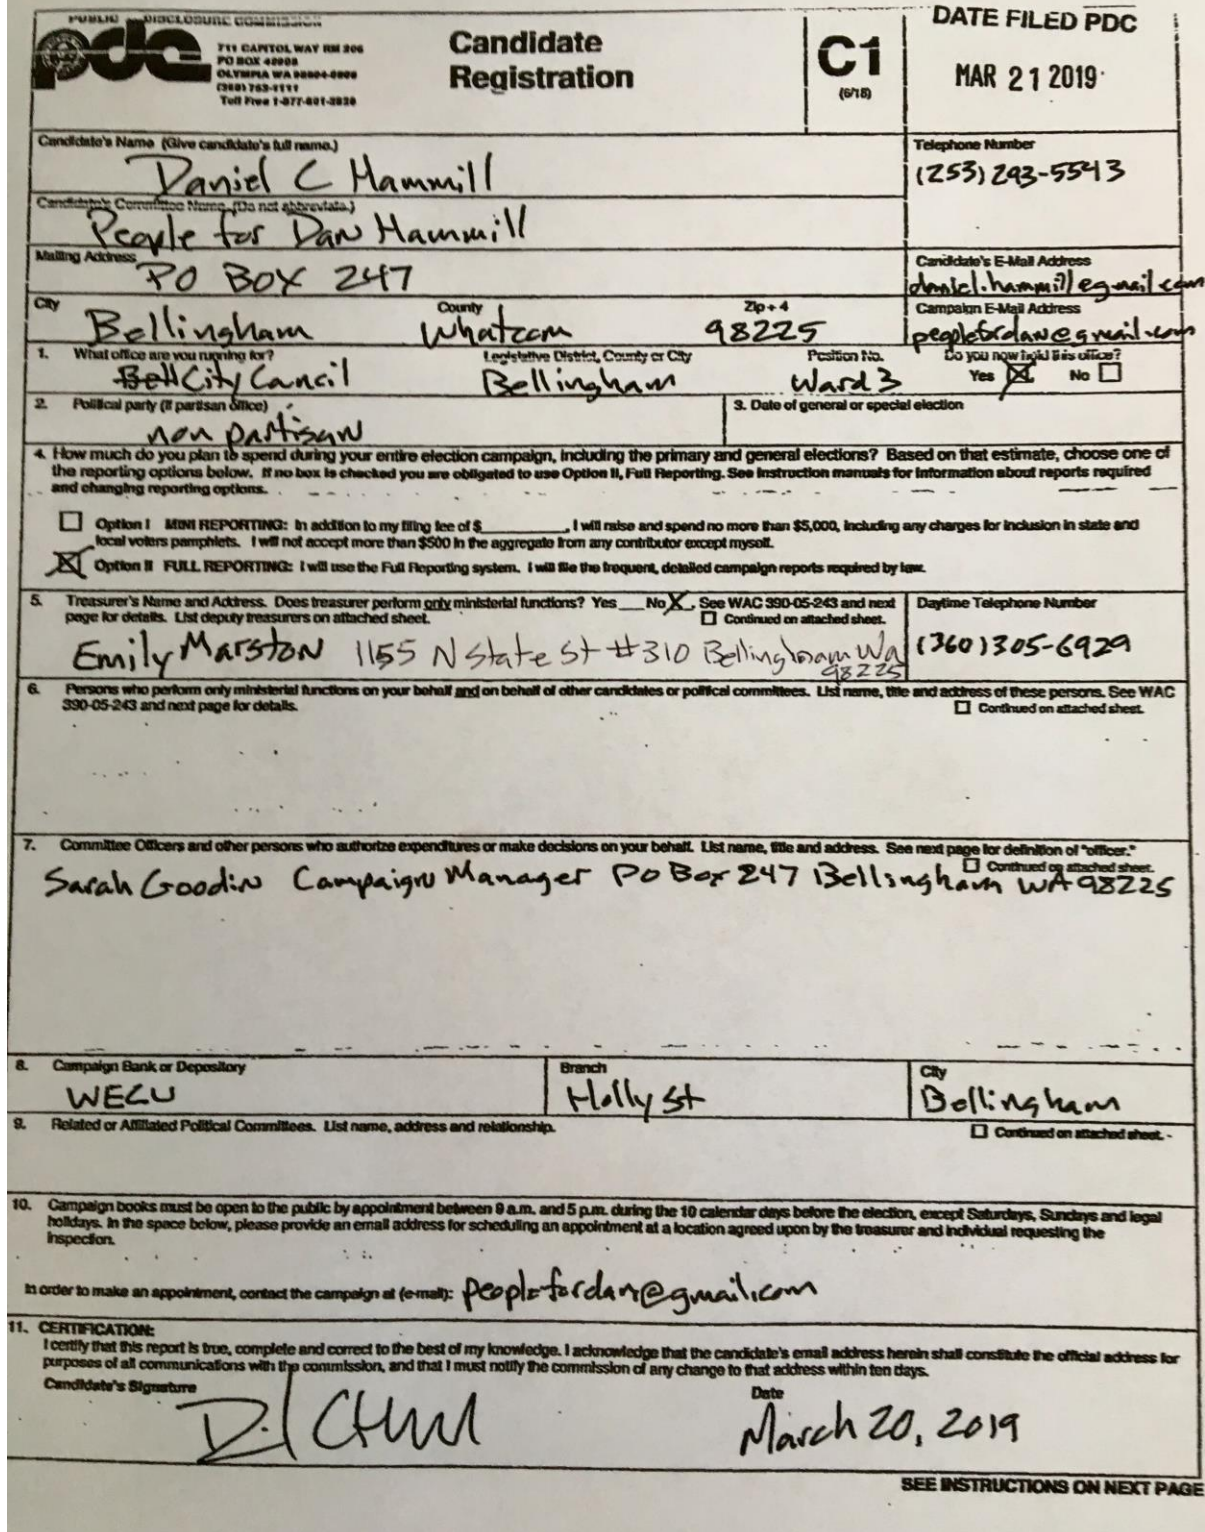 PUBLIC DISCLOSURE COMMISSION
pdc
711 CAPITOL WAY RM 206
PO BOX 40908
OLYMPIA WA 98504-0908
(360) 753-1111
Toll Free 1-877-601-2828
Candidate
Registration
C1
(6/18)
DATE FILED PDC
MAR 21 2019
Candidate's Name (Give candidate's full name.)
Daniel C Hammill
Telephone Number
(253) 293-5543
Candidate's Committee Name. (Do not abbreviate.)
People for Dan Hammill
Mailing Address
PO BOX 247
Candidate's E-Mail Address
daniel.hammill@gmail.com
City
Bellingham
County
Whatcom
Zip + 4
98225
Campaign E-Mail Address
peoplefordan@gmail.com
1. What office are you running for?
City Council
Legislative District, County or City
Bellingham
Position No.
Ward 3
Do you now hold this office?
Yes ☒ No ☐
2. Political party (if partisan office)
non partisan
3. Date of general or special election
4. How much do you plan to spend during your entire election campaign, including the primary and general elections? Based on that estimate, choose one of
the reporting options below. If no box is checked you are obligated to use Option II, Full Reporting. See instruction manuals for information about reports required
and changing reporting options.
☐ Option I MINI REPORTING: In addition to my filing fee of $________, I will raise and spend no more than $5,000, including any charges for inclusion in state and
local voters pamphlets. I will not accept more than $500 in the aggregate from any contributor except myself.
☒ Option II FULL REPORTING: I will use the Full Reporting system. I will file the frequent, detailed campaign reports required by law.
5. Treasurer's Name and Address. Does treasurer perform only ministerial functions? Yes ___ No X. See WAC 390-05-243 and next
page for details. List deputy treasurers on attached sheet. ☐ Continued on attached sheet.
Emily Marston 1155 N State St #310 Bellingham Wa
98225
Daytime Telephone Number
(360) 305-6929
6. Persons who perform only ministerial functions on your behalf and on behalf of other candidates or political committees. List name, title and address of these persons. See WAC
390-05-243 and next page for details. ☐ Continued on attached sheet.
7. Committee Officers and other persons who authorize expenditures or make decisions on your behalf. List name, title and address. See next page for definition of "officer."
☐ Continued on attached sheet.
Sarah Goodin Campaign Manager PO Box 247 Bellingham WA 98225
8. Campaign Bank or Depository
WECU
Branch
Holly St
City
Bellingham
9. Related or Affiliated Political Committees. List name, address and relationship.
☐ Continued on attached sheet.
10. Campaign books must be open to the public by appointment between 8 a.m. and 5 p.m. during the 10 calendar days before the election, except Saturdays, Sundays and legal
holidays. In the space below, please provide an email address for scheduling an appointment at a location agreed upon by the treasurer and individual requesting the
inspection.
In order to make an appointment, contact the campaign at (e-mail): peoplefordan@gmail.com
11. CERTIFICATION:
I certify that this report is true, complete and correct to the best of my knowledge. I acknowledge that the candidate's email address herein shall constitute the official address for
purposes of all communications with the commission, and that I must notify the commission of any change to that address within ten days.
Candidate's Signature
Date
March 20, 2019
SEE INSTRUCTIONS ON NEXT PAGE